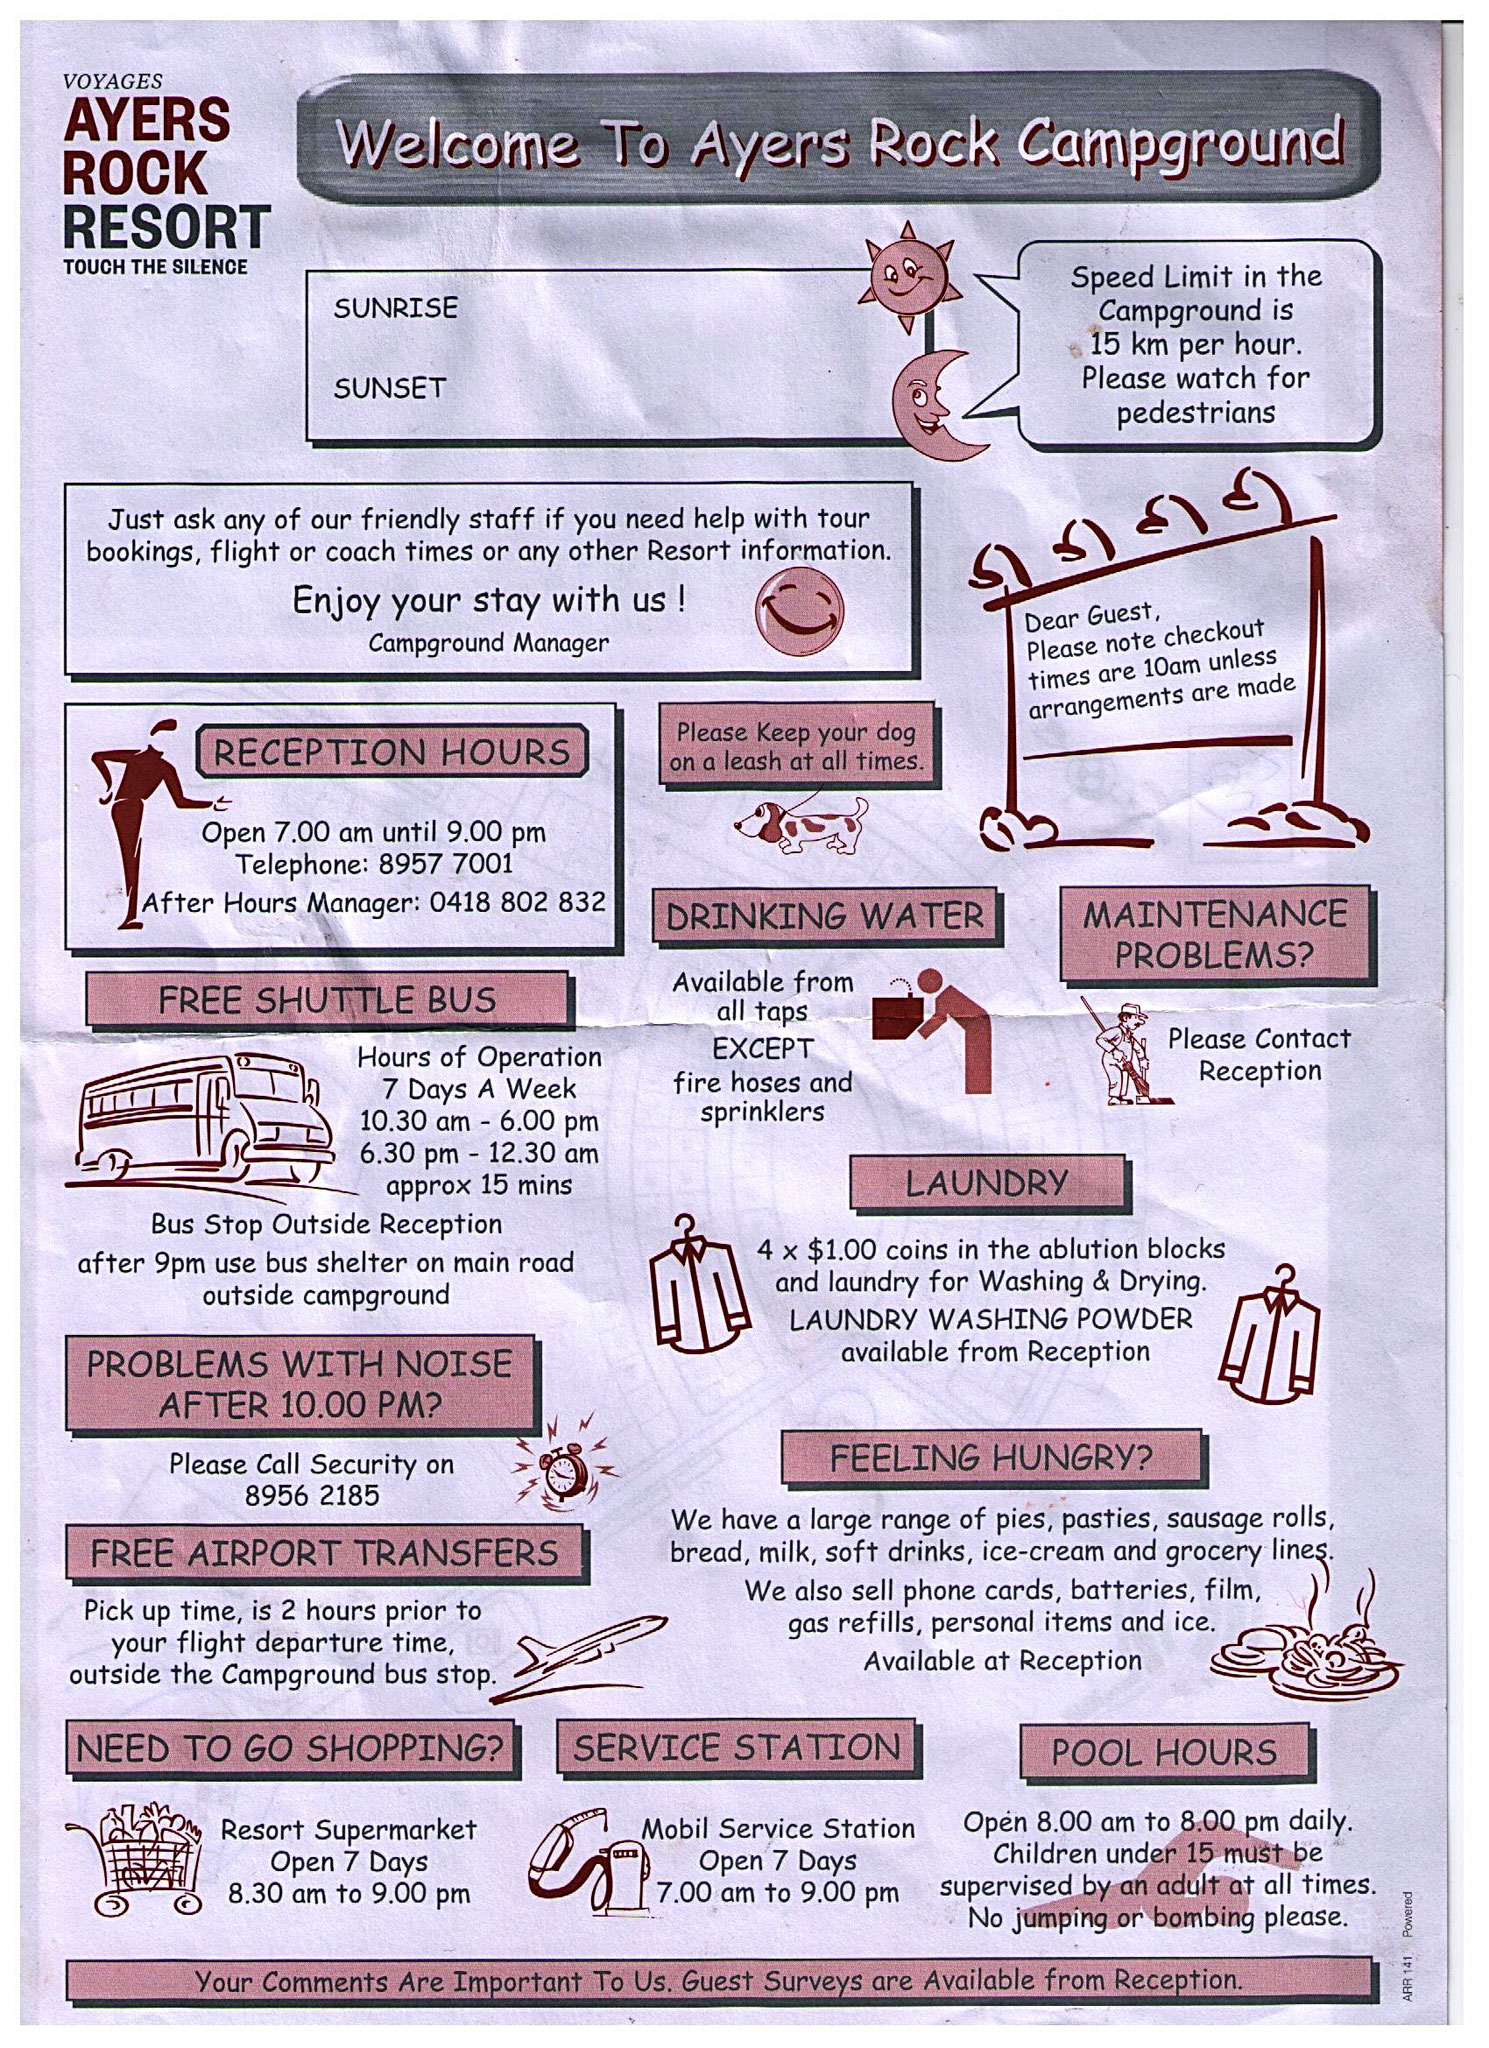 VOYAGES
AYERS
ROCK
RESORT
TOUCH THE SILENCE
Welcome To Ayers Rock Campground
SUNRISE
SUNSET
Speed Limit in the
Campground is
15 km per hour.
Please watch for
pedestrians
Just ask any of our friendly staff if you need help with tour
bookings, flight or coach times or any other Resort information.
Enjoy your stay with us !
Campground Manager
Dear Guest,
Please note checkout
times are 10am unless
arrangements are made
RECEPTION HOURS
Open 7.00 am until 9.00 pm
Telephone: 8957 7001
After Hours Manager: 0418 802 832
Please Keep your dog
on a leash at all times.
DRINKING WATER
Available from
all taps
EXCEPT
fire hoses and
sprinklers
MAINTENANCE
PROBLEMS?
Please Contact
Reception
FREE SHUTTLE BUS
Hours of Operation
7 Days A Week
10.30 am - 6.00 pm
6.30 pm - 12.30 am
approx 15 mins
Bus Stop Outside Reception
after 9pm use bus shelter on main road
outside campground
LAUNDRY
4 x $1.00 coins in the ablution blocks
and laundry for Washing & Drying.
LAUNDRY WASHING POWDER
available from Reception
PROBLEMS WITH NOISE
AFTER 10.00 PM?
Please Call Security on
8956 2185
FEELING HUNGRY?
We have a large range of pies, pasties, sausage rolls,
bread, milk, soft drinks, ice-cream and grocery lines.
We also sell phone cards, batteries, film,
gas refills, personal items and ice.
Available at Reception
FREE AIRPORT TRANSFERS
Pick up time, is 2 hours prior to
your flight departure time,
outside the Campground bus stop.
NEED TO GO SHOPPING?
Resort Supermarket
Open 7 Days
8.30 am to 9.00 pm
SERVICE STATION
Mobil Service Station
Open 7 Days
7.00 am to 9.00 pm
POOL HOURS
Open 8.00 am to 8.00 pm daily.
Children under 15 must be
supervised by an adult at all times.
No jumping or bombing please.
Your Comments Are Important To Us. Guest Surveys are Available from Reception.
ARR 141 Powered